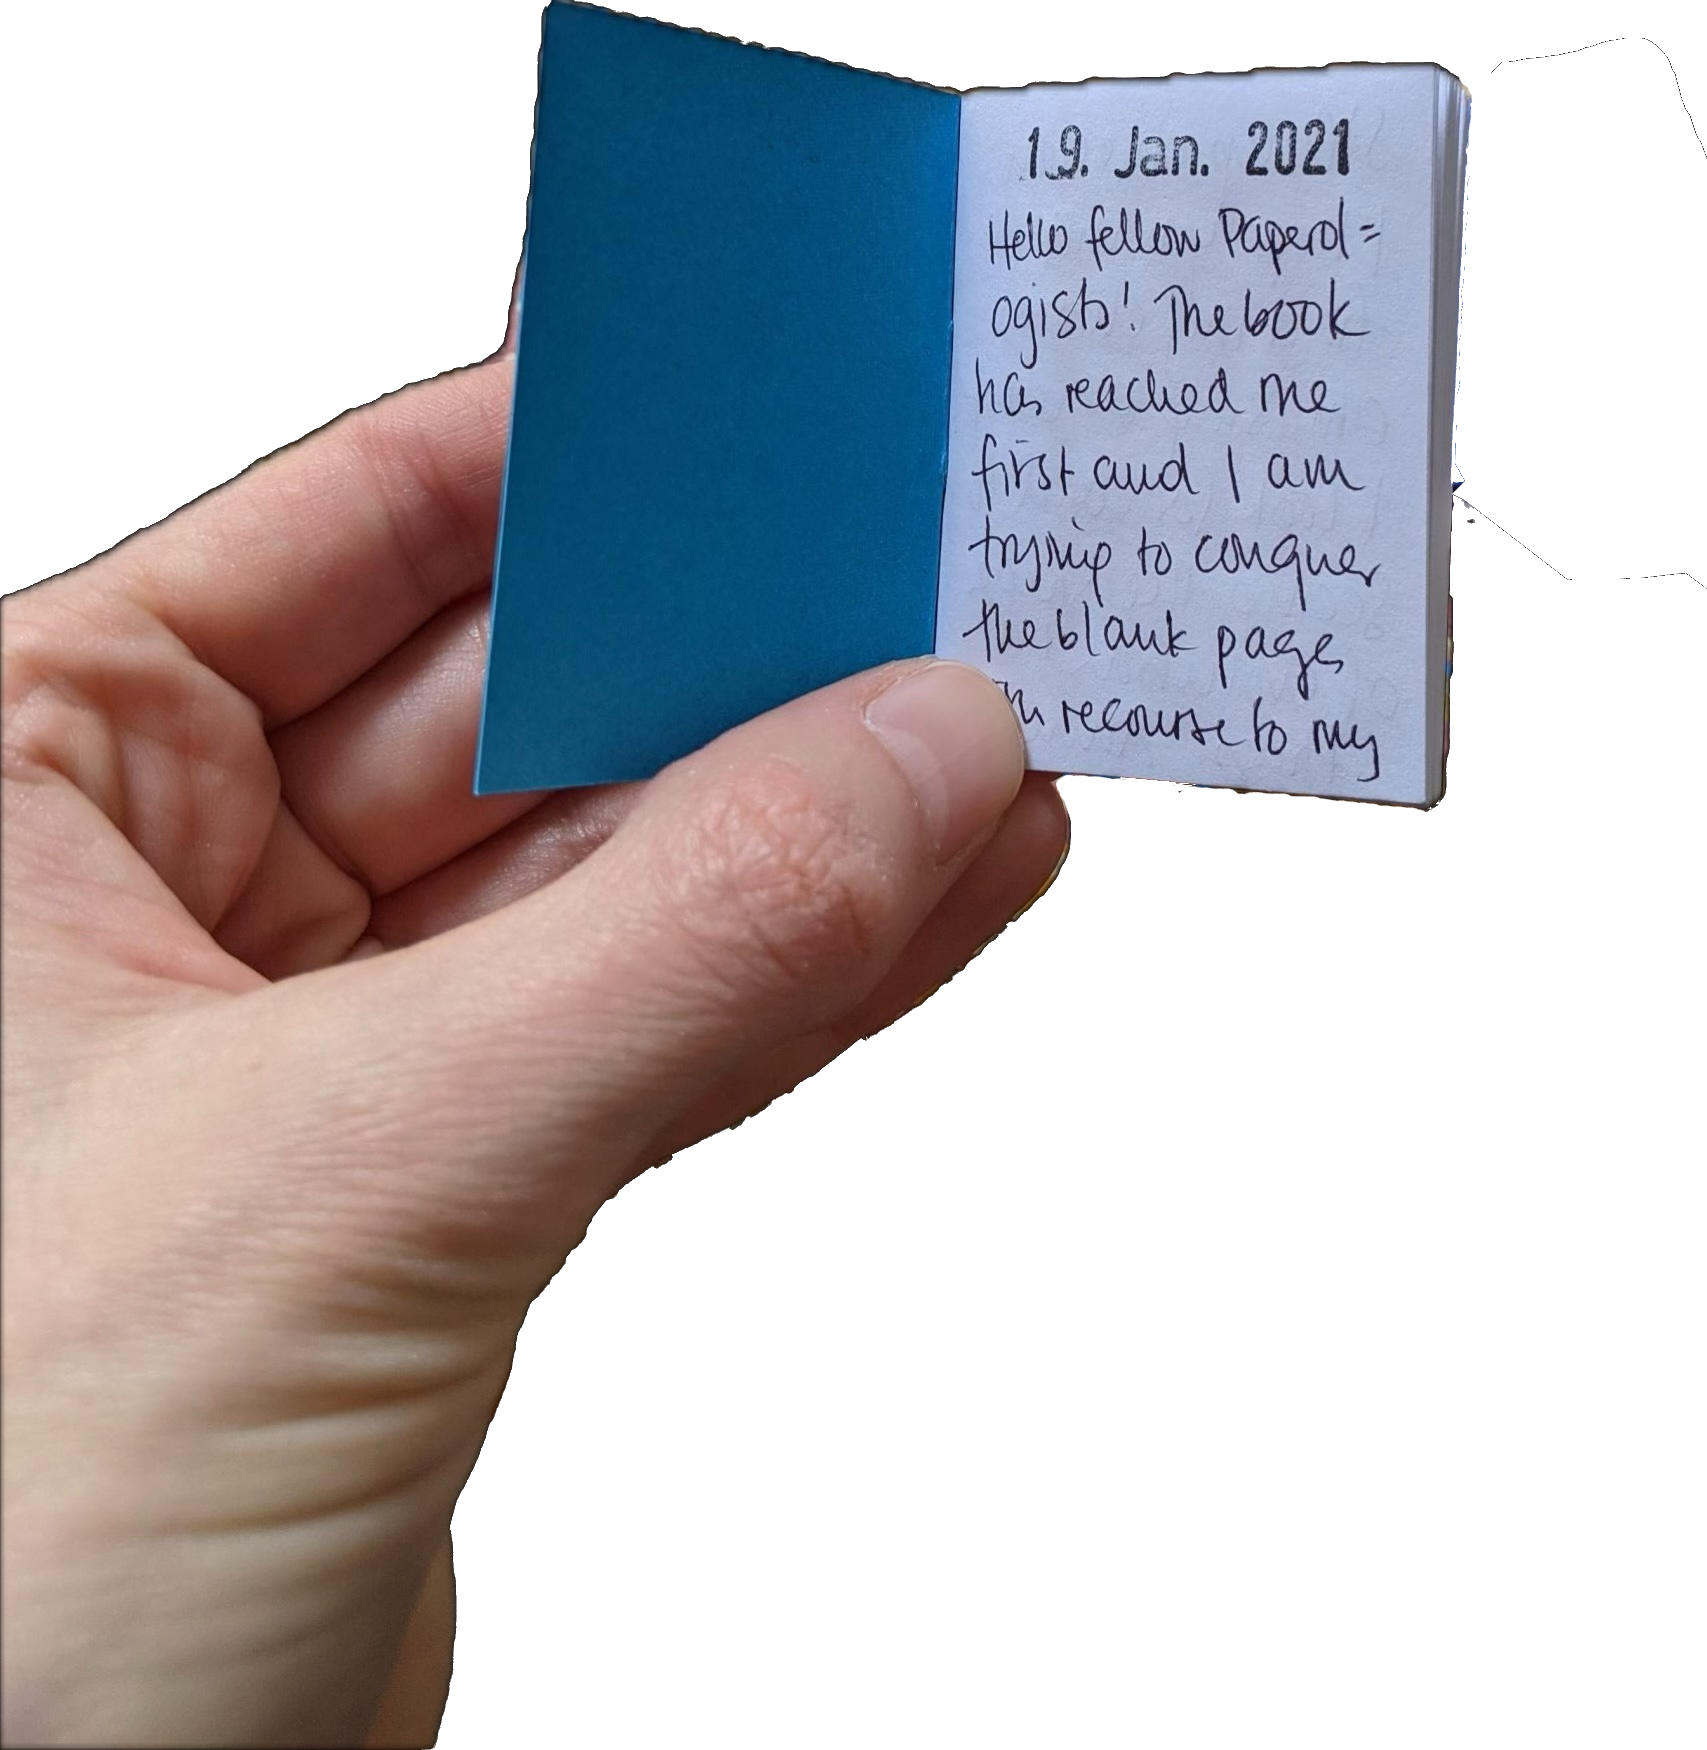 19. Jan. 2021
Hello fellow Paperol=
ogists! The book
has reached me
first and I am
trying to conquer
the blank pages
recourse to my